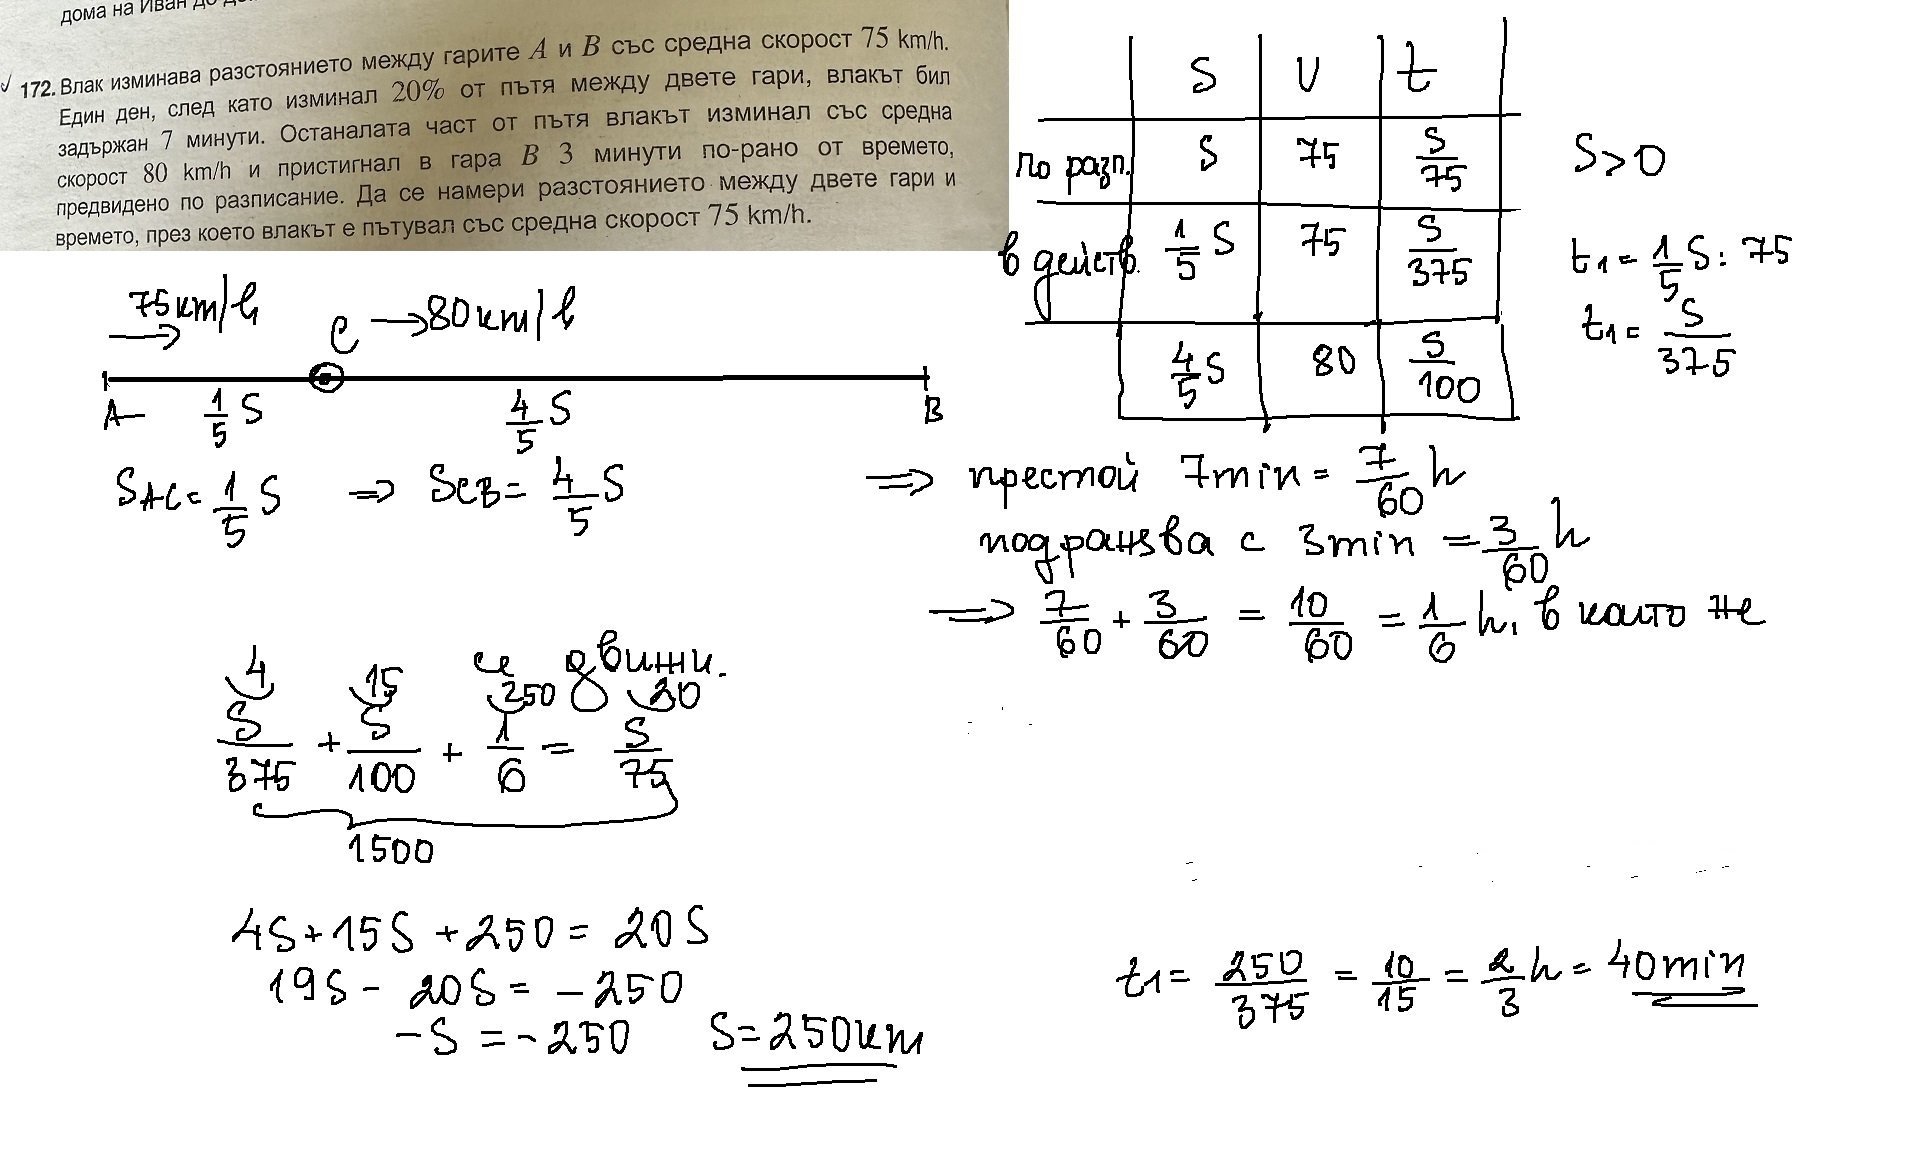 дома на Иван до
172. Влак изминава разстоянието между гарите A и B със средна скорост 75 km/h.
Един ден, след като изминал 20% от пътя между двете гари, влакът бил
задържан 7 минути. Останалата част от пътя влакът изминал със средна
скорост 80 km/h и пристигнал в гара B 3 минути по-рано от времето,
предвидено по разписание. Да се намери разстоянието между двете гари и
времето, през което влакът е пътувал със средна скорост 75 km/h.
S V t
по разп. S 75 S/75
в действ. 1/5 S 75 S/375
4/5 S 80 S/100
S>0
t1 = 1/5 S : 75
t1 = S/375
75 km/h C → 80 km/h
A 1/5 S 4/5 S B
SAC = 1/5 S => SCB = 4/5 S
=> престой 7min = 7/60 h
подранява с 3min = 3/60 h
=> 7/60 + 3/60 = 10/60 = 1/6 h, в които не
се движи.
4 15 250 20
S/375 + S/100 + 1/6 = S/75
1500
4S + 15S + 250 = 20S
19S - 20S = -250
-S = -250 S = 250 km
t1 = 250/375 = 10/15 = 2/3 h = 40 min